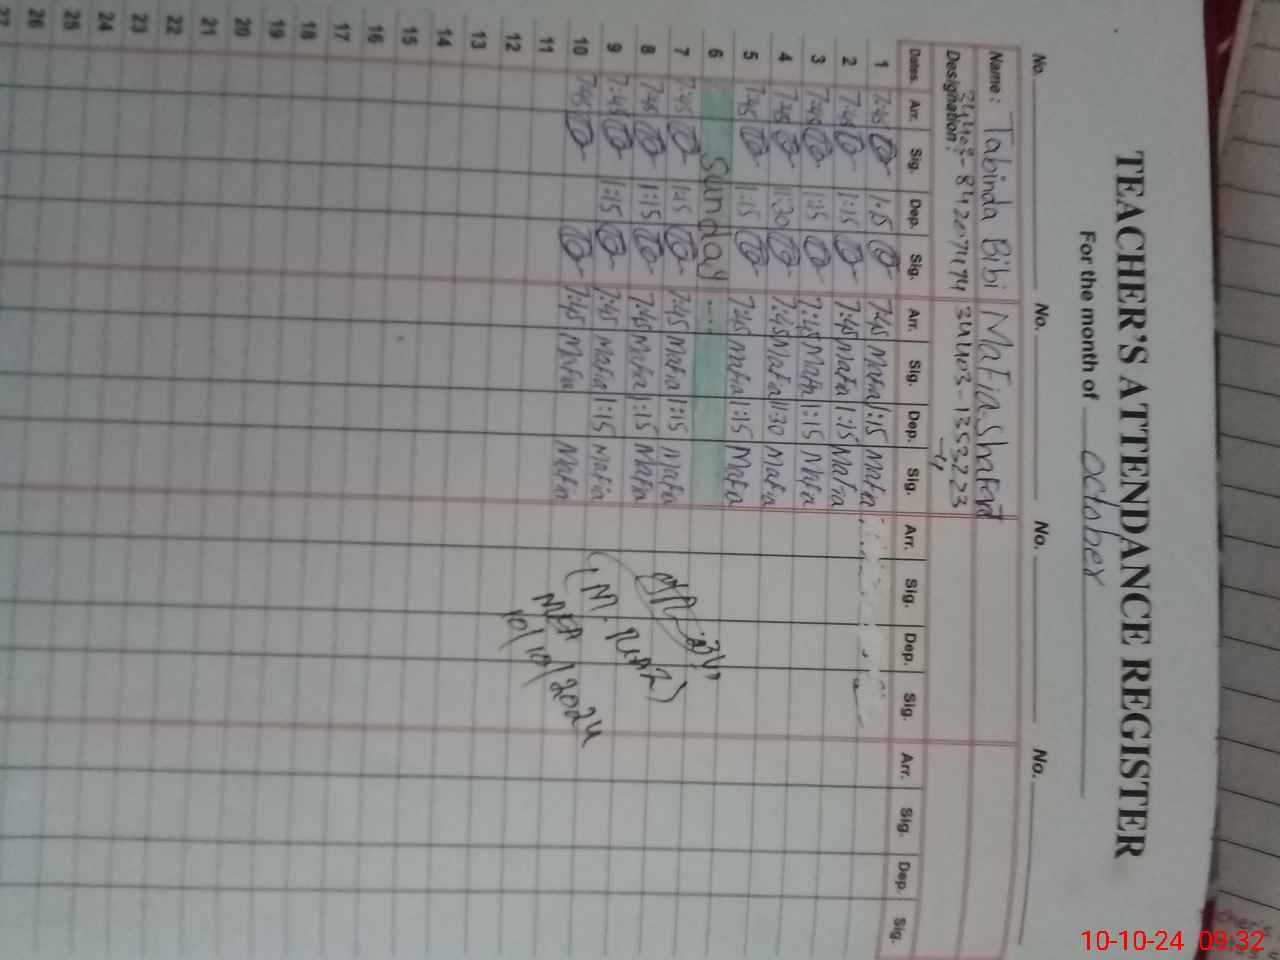 TEACHER'S ATTENDANCE REGISTER
For the month of October
No. No. No. No.
Name: Tabinda Bibi Mafia Shafaqat
Designation: 34403-84207474 34403-1353223
Dates. Arr. Sig. Dep. Sig. Arr. Sig. Dep. Sig. Arr. Sig. Dep. Sig. Arr. Sig. Dep. Sig.
1 7:45 1:15 7:45 Mafia 1:15 Mafia
2 7:45 1:15 7:45 Mafia 1:15 Mafia
3 7:45 1:15 7:45 Mafia 1:15 Mafia
4 7:45 11:30 7:45 Mafia 11:30 Mafia
5 7:45 1:15 7:45 Mafia 1:15 Mafia
6 Sunday ....
7 7:45 1:15 7:45 Mafia 1:15 Mafia
8 7:45 1:15 7:45 Mafia 1:15 Mafia
9 7:45 1:15 7:45 Mafia 1:15 Mafia
10 7:45 7:45 Mafia Mafia
11
12
13
14
15
16
17
18
19
20
21
22
23
24
25
26
27
(M. RIAZ)
MEA
10/10/2024
10-10-24 09:32